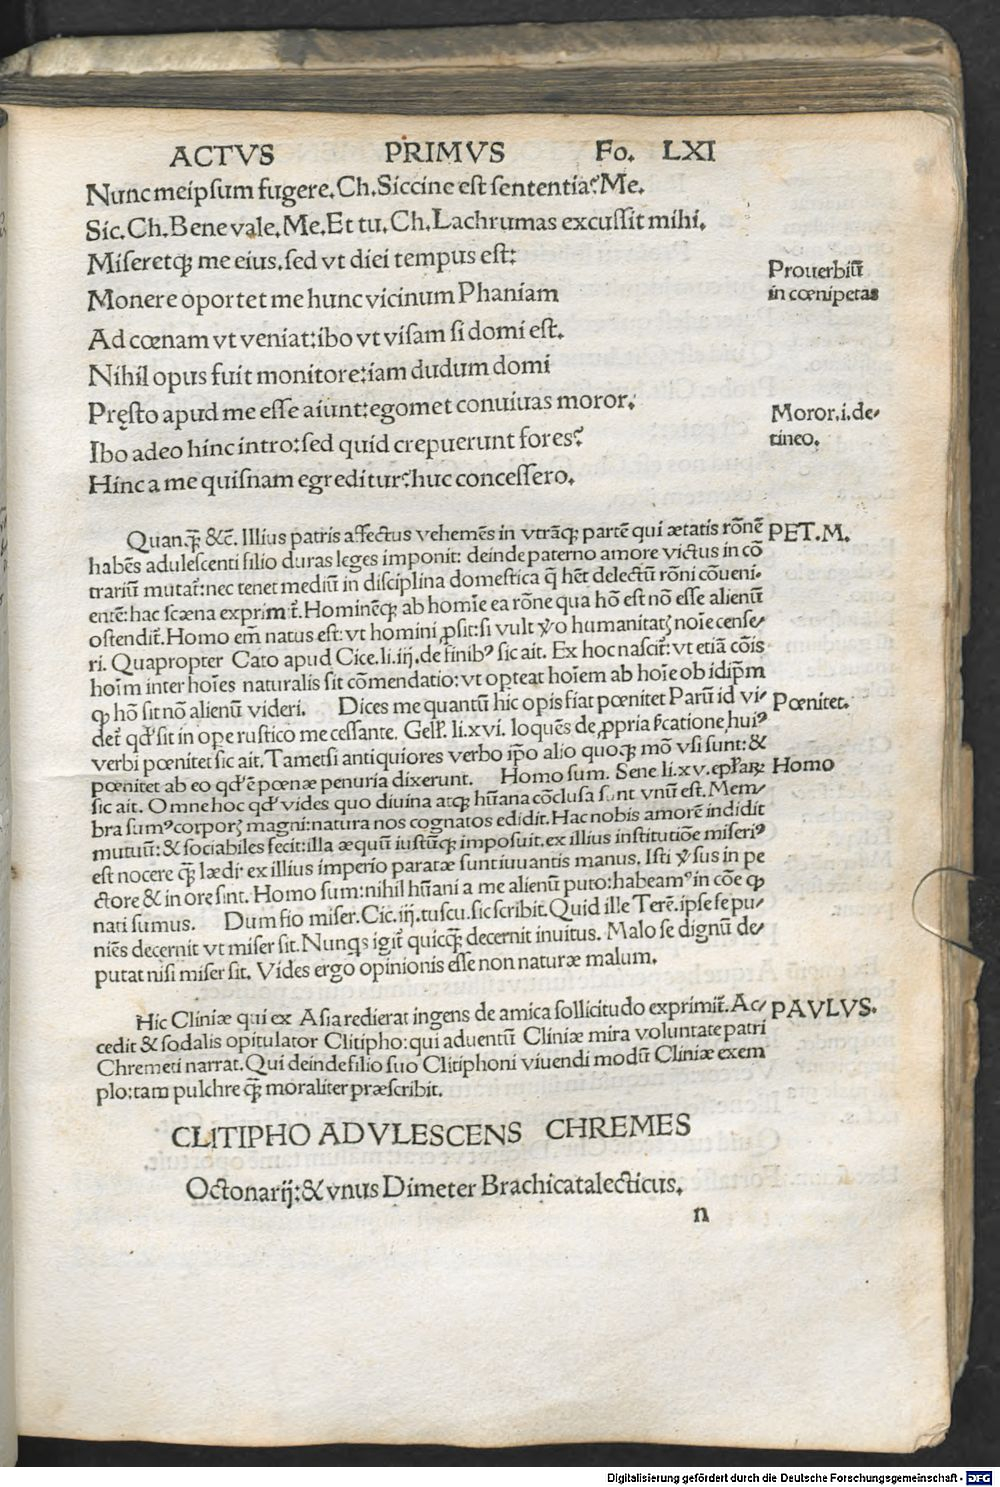 ACTVS PRIMVS Fo. LXI
Nunc meipsum fugere. Ch. Siccine est sententia? Me.
Sic. Ch. Bene vale. Me. Et tu. Ch. Lachrumas excussit mihi.
Miseretq̃ me eius. sed vt diei tempus est:
Monere oportet me hunc vicinum Phaniam
Ad cœnam vt veniat: ibo vt visam si domi est.
Nihil opus fuit monitore: iam dudum domi
Pręsto apud me esse aiunt: egomet conuiuas moror.
Ibo adeo hinc intro: sed quid crepuerunt fores?
Hinc a me quisnam egreditur? huc concessero.
Prouerbiū
in cœnipetas
Moror. i. de-
tineo.
Quan. q̃ &c̃. Illius patris affectus vehemēs in vtrāq̃ partē qui ætatis rōnē
habēs adulescenti filio duras leges imponit: deinde paterno amore victus in cō
trariū mutat̃: nec tenet mediū in disciplina domestica q̄ hēt delectū rōni cōueni-
entē: hac scæna exprimit̃. Hominēq̃ ab homīe ea rōne qua hō est nō esse alienū
ostendit̃. Homo em̃ natus est: vt homini ꝓsit: si vult ṽo humanitatꝭ noīe cense-
ri. Quapropter Cato apud Cice. li. iij. de finibꝰ sic ait. Ex hoc nascit̃: vt etiā cōis
hoīm inter hoīes naturalis sit cōmendatio: vt opteat hoīem ab hoīe ob idip̄m
ꝙ hō sit nō alienū videri. Dices me quantū hic opis fiat pœnitet Parū id vi-
det̃ qd̃ sit in ope rustico me cessante. Gell. li. xvi. loquēs de ꝓpria significatione huiꝰ
verbi pœnitet sic ait. Tametsi antiquiores verbo ip̄o alio quoq̃ mō vsi sunt: &
pœnitet ab eo qd̃ ē pœnæ penuria dixerunt. Homo sum. Sene li. xv. ep̄l'aꝝ
sic ait. Omne hoc qd̃ vides quo diuina atq̃ hūana cōclusa sunt vnū est. Mem-
bra sumꝰ corporꝭ magni: natura nos cognatos edidit. Hac nobis amorē indidit
mutuū: & sociabiles fecit: illa æquū iustūq̃ imposuit. ex illius institutiōe miseriꝰ
est nocere q̃ lædi: ex illius imperio paratæ sunt iuuantis manus. Isti ṽsus in pe
ctore & in ore sint. Homo sum: nihil hūani a me alienū puto: habeamꝰ in cōe ꝙ
nati sumus. Dum fio miser. Cic. iij. tuscu. sic scribit. Quid ille Terē. ipse se pu-
niēs decernit vt miser sit. Nunq̃s igit̃ quicq̃ decernit inuitus. Malo se dignū de-
putat nisi miser sit. Vides ergo opinionis esse non naturæ malum.
PET. M.
Pœnitet.
Homo
Hic Cliniæ qui ex Asia redierat ingens de amica sollicitudo exprimit̃. Ac-
cedit & sodalis opitulator Clitipho: qui aduentū Cliniæ mira voluntate patri
Chremeti narrat. Qui deinde filio suo Clitiphoni viuendi modū Cliniæ exem
plo: tam pulchre q̃ moraliter præscribit.
PAVLVS.
CLITIPHO ADVLESCENS CHREMES
Octonarij: & vnus Dimeter Brachicatalecticus.
n
Digitalisierung gefördert durch die Deutsche Forschungsgemeinschaft - DFG